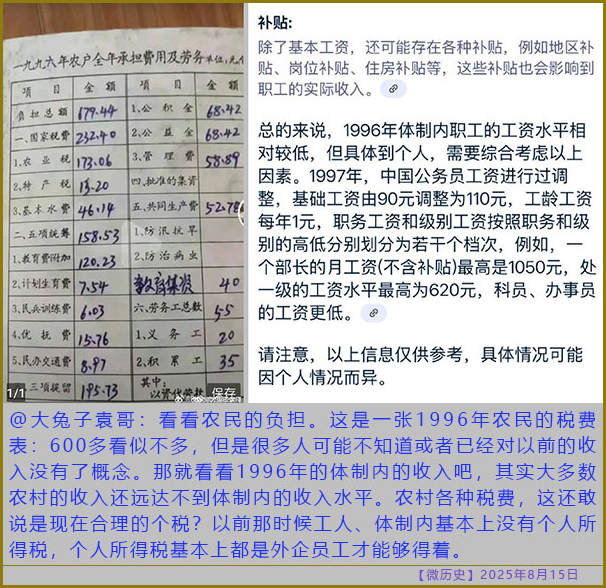 一九九六年农户全年承担费用及劳务 单位:元
项目 金额 项目 金额
负担总额 679.44 1.公积金 68.42
一、国家税费 232.40 2.公益金 68.42
1.农业税 173.06 3.管理费 58.89
2.特产税 13.20 四.批准的集资
3.基本水费 46.14 五.共同生产费 52.78
二、五项统筹 158.53 1.防汛抗旱
1.教育费附加 120.23 2.防治病虫
2.计划生育费 7.54 教育集资 40
3.民兵训练费 6.03 六.劳务工总数 55
4.优抚费 15.76 1.义务工 20
5.民办交通费 8.97 2.积累工 35
三项提留 195.73 其中:
以资代劳款
1/1
保存
补贴:
除了基本工资，还可能存在各种补贴，例如地区补
贴、岗位补贴、住房补贴等，这些补贴也会影响到
职工的实际收入。
总的来说，1996年体制内职工的工资水平相
对较低，但具体到个人，需要综合考虑以上
因素。1997年，中国公务员工资进行过调
整，基础工资由90元调整为110元，工龄工资
每年1元，职务工资和级别工资按照职务和级
别的高低分别划分为若干个档次，例如，一
个部长的月工资(不含补贴)最高是1050元，处
一级的工资水平最高为620元，科员、办事员
的工资更低。
请注意，以上信息仅供参考，具体情况可能
因个人情况而异。
@大兔子袁哥：看看农民的负担。这是一张1996年农民的税费
表：600多看似不多，但是很多人可能不知道或者已经对以前的收
入没有了概念。那就看看1996年的体制内的收入吧，其实大多数
农村的收入还远达不到体制内的收入水平。农村各种税费，这还敢
说是现在合理的个税？以前那时候工人、体制内基本上没有个人所
得税，个人所得税基本上都是外企员工才能够得着。
【微历史】2025年8月15日